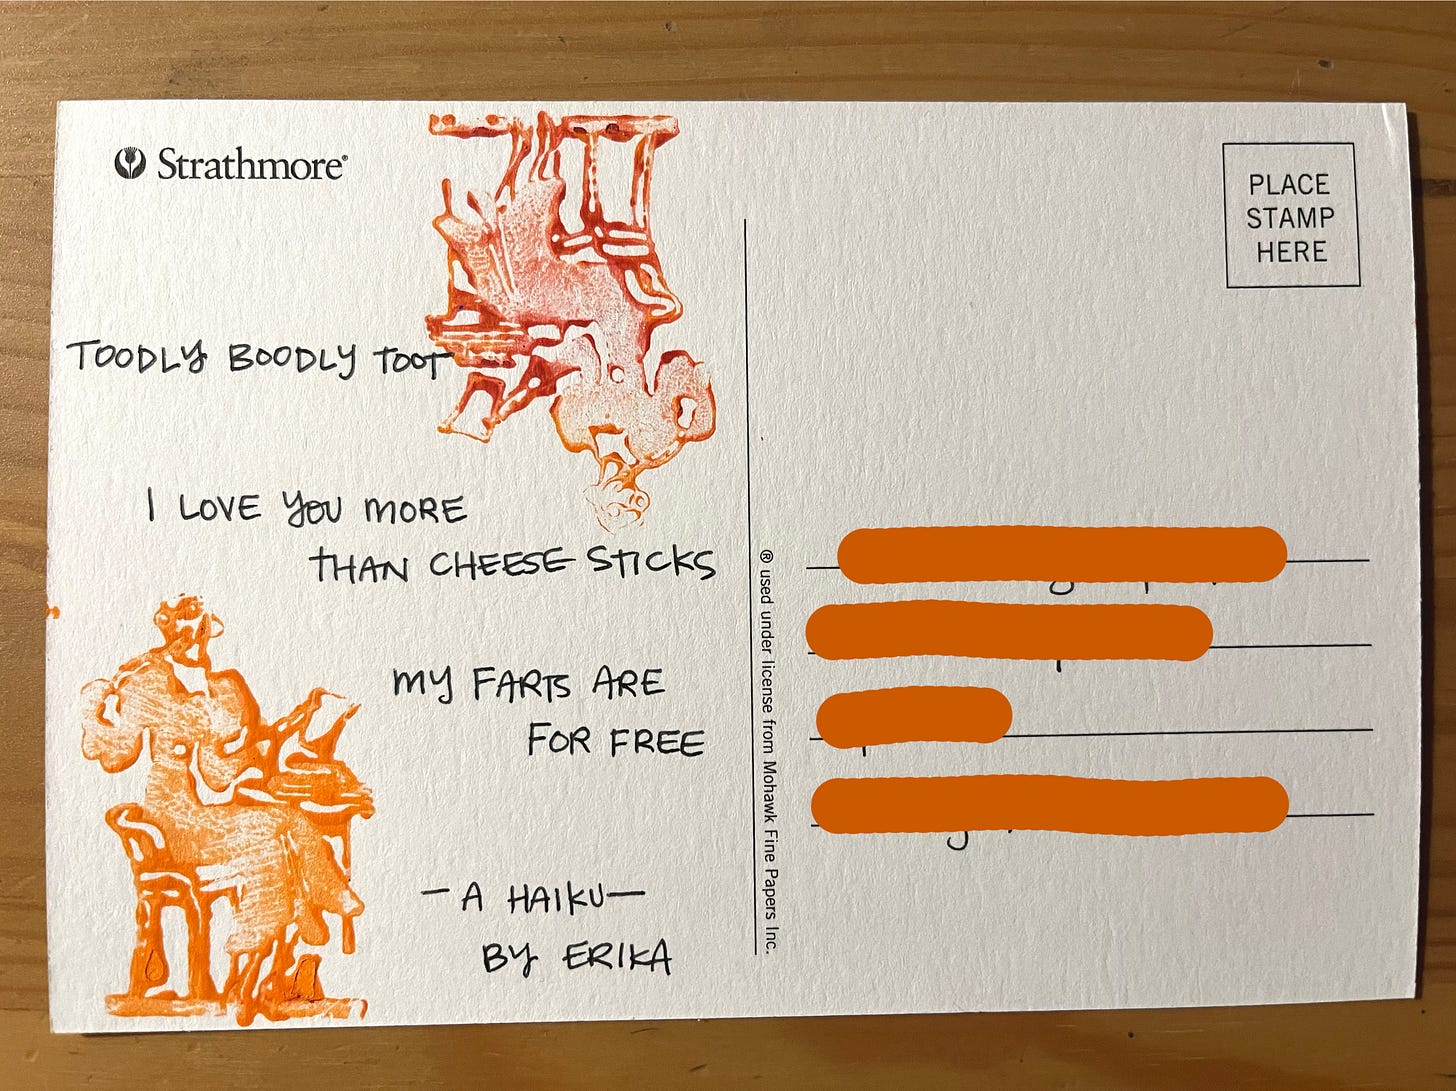 Strathmore®
TOODLY BOODLY TOOT
I LOVE YOU MORE
THAN CHEESE STICKS
MY FARTS ARE
FOR FREE
— A HAIKU —
BY ERIKA
PLACE
STAMP
HERE
® used under license from Mohawk Fine Papers Inc.